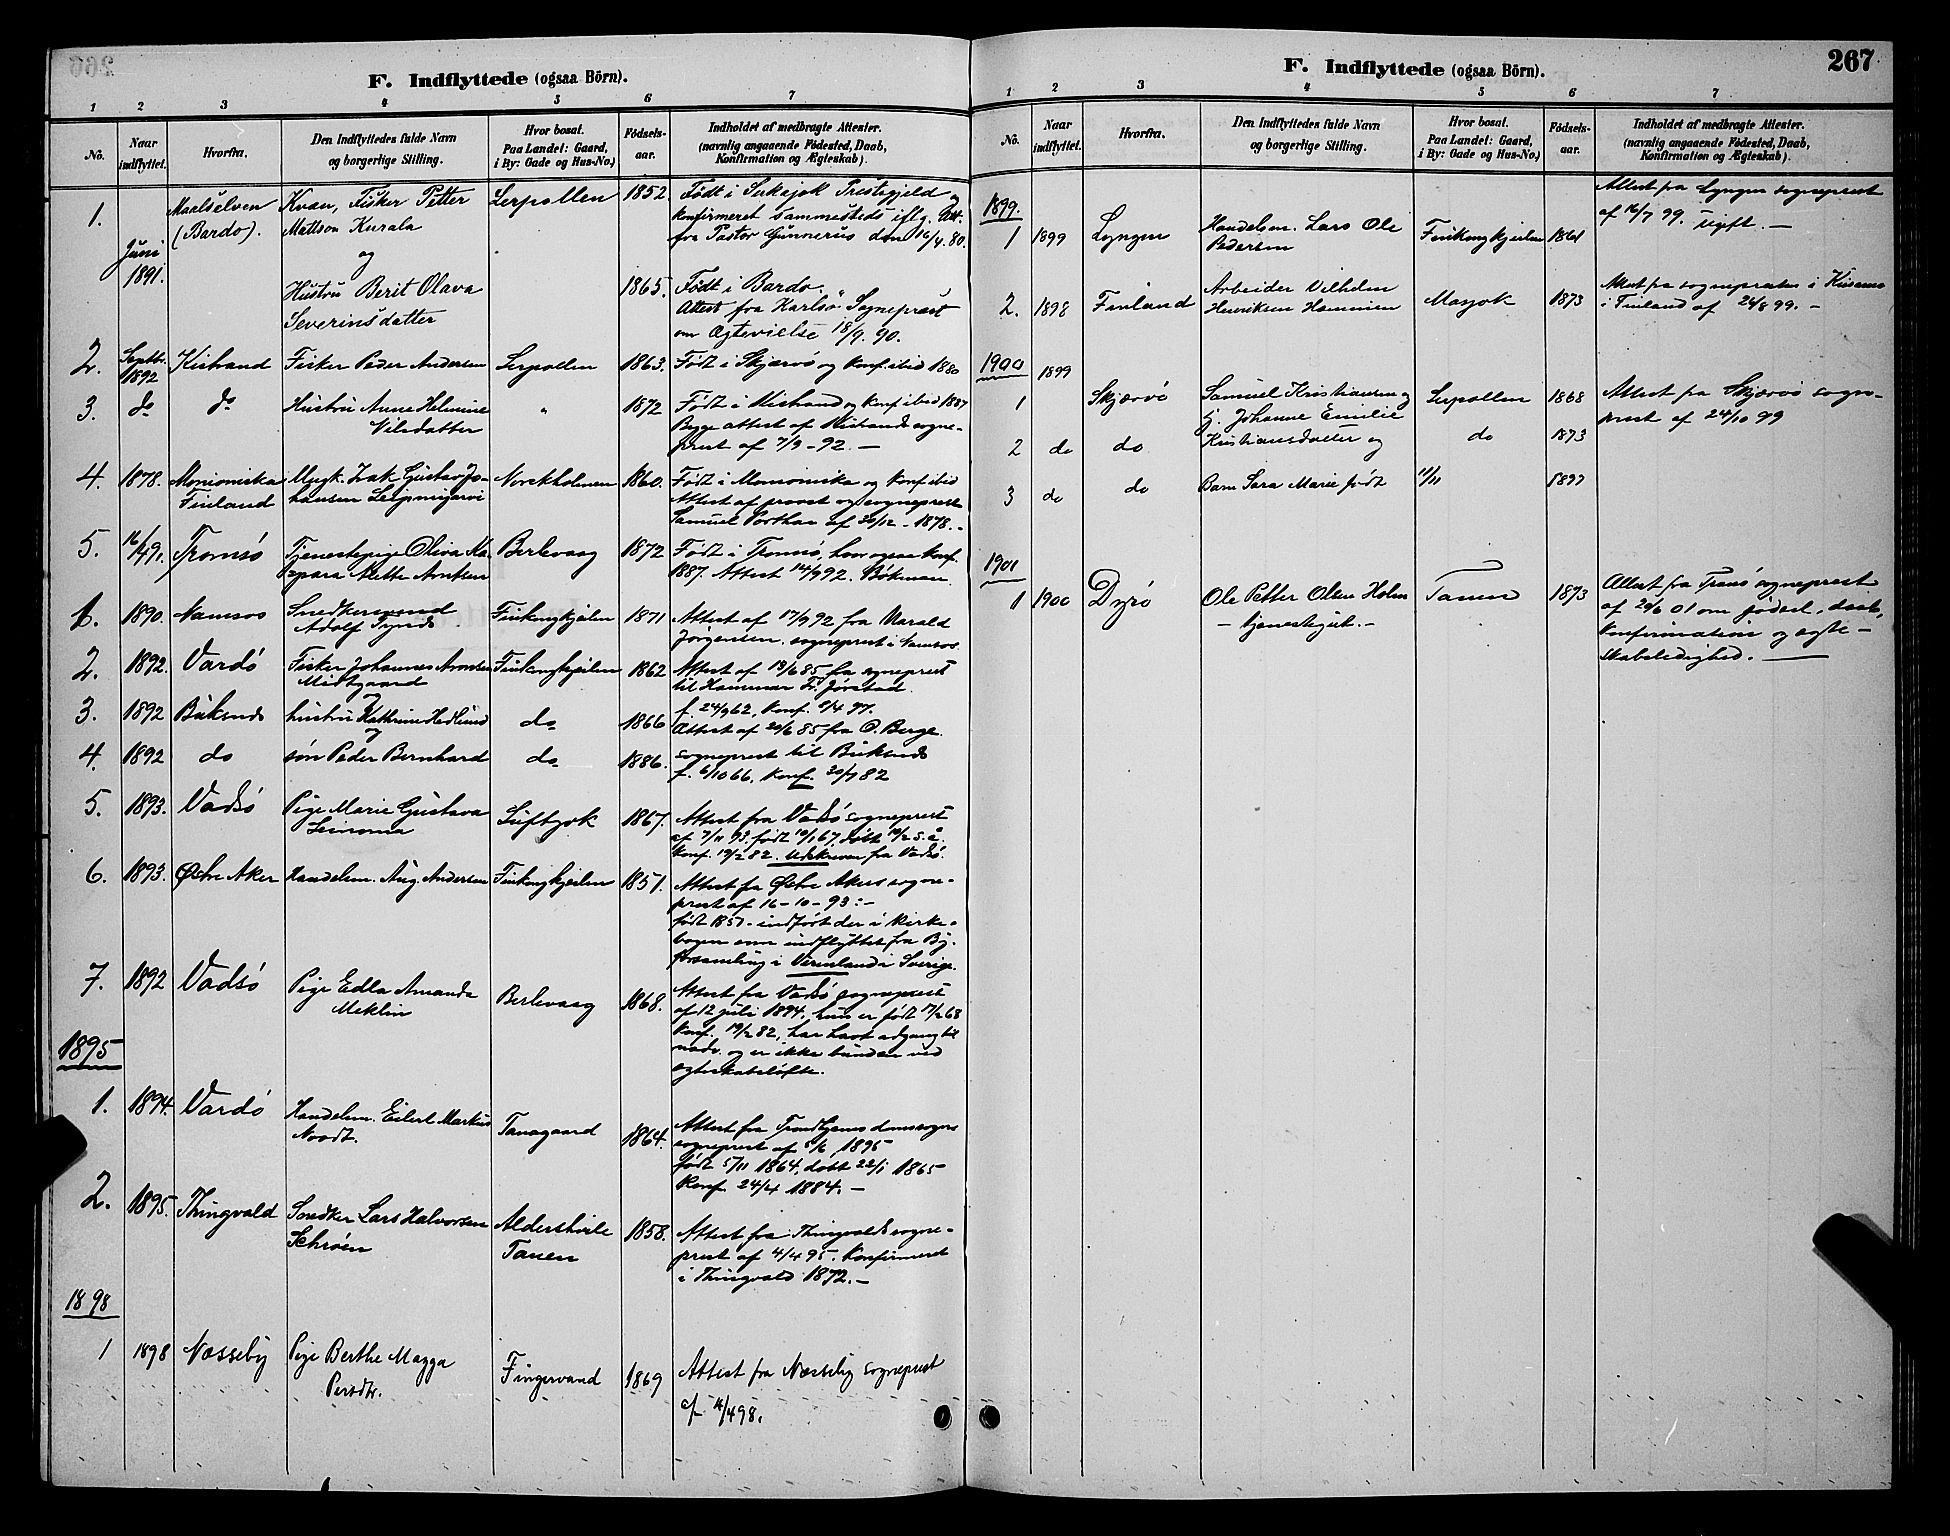 F. Indflyttede (ogsaa Börn).
1 2 3 4 5 6 7
No.
Naar indflyttet.
Hvorfra.
Den Indflyttedes fulde Navn
og borgerlige Stilling.
Hvor bosat.
Paa Landet: Gaard,
i By: Gade og Hus-No.)
Födsels-
aar.
Indholdet af medbragte Attester.
(navnlig angaaende Födested, Daab,
Konfirmation og Ægteskab).
1. Juni 1891. Maalselven (Bardo). Kvæn, Fisker Petter Lerpollen 1852
Mattson Kurala
og
Født i Prestegjeld og
konfirmeret sammesteds iflg. Att.
fra Pastor Gunnerus dem 16/4. 80.
Hustru Berit Olava
Severinsdatter
1865. Født i Bardo.
Attest fra Karlsö Sogneprest
om Ægtevielse 18/9. 90.
2. Septbr. 1892 Kistrand Fisker Peder Andersen Lerpollen 1863. Født i Skjærvö og konf. ibid 1880
3. do do Hustru Anne Helmine
Nilsdatter
" 1872 Født i Kistrand og konf ibid 1887
Begge attest af Kistrands sogne-
prest af 7/9 - 92. —
4. 1878. Moniomiska
Finland
Isak Gustav Jo-
hansen
1860. Født i Momiomiska og konf ibid
Attest af provst og sogneprest
Samuel af 30/12 - 1878. -
5. 16/4 91. Tromsö Tjenestepige Oliva
Anette Arntsen
Berlevaag 1872 Født i Tromsö, hvor ogsaa konf.
1887. Attest 14/9 92. Bökman.
1. 1890. Namsos Snedkersvend
Adolf
Finkongkjeilen 1871 Attest af 17/9 92 fra Harald
Jörgensen, sogneprest i Namsos
2. 1892. Vardö Fisker Johannes Arntsen
Midtgaard
og
Finkongkjeilen 1862 Attest af 19/6 85 fra sogneprest
til Hammar Fr. Jörstad.
f. 24/9 62, konf.
3. 1892 Buksnes hustru Kathrine Hedlund
og
do 1866 Attest af 20/6 85 fra O. Berge.
4. 1892 do søn Peder Bernhard do 1886. sogneprest til Buksnes
f. 6/10 66, konf. 30/7 82
5. 1893. Vadsö Pige Marie Gustava
Leinoma
Luftjok 1867. Attest fra Vadsö sogneprest
af 7/11 93. født 10/1 67, döbt 19/2 s. å.
konf. 19/2 82. Udskreven fra Vadsö.
6. 1893. Østre Aker Handelsm. Aug. Andersen Finkongkjeilen 1857. Attest fra Østre Akers sogne-
prest af 16-10-93:-
født 1857 - indført der i Kirke-
bogen som indflyttet fra By.
forsamling i Vermland i Sverige.
7. 1892 Vadsö Pige Edla Amanda
Meklin
Berlevaag 1868. Attest fra Vadsö sogneprest
af 12 juli 1894, hun er født 17/2 68
konf. 19/2 82, har havt adgang til
nadv. og er ikke bunden ved
egteskabslöfte.
1895
1. 1894. Vardö Handelsm. Eilert Markus
Noodt.
Tanagaard 1864. Attest fra Trondhjems domsogns
sogneprest af 5/6 1895
født 5/11 1864, döbt 22/1 1865
Konf 24/4 1884. —
2. 1895. Thingvold Snedker Lars Halvorsen
Schröen
Aldershvile
Tanen
1858. Attest fra Thingvolds sogne-
prest af 4/4 95. Konfirmeret
i Thingvold 1872. —
1898
1 1898 Næsseby Pige Berthe Magga
Persdtr.
Fingervand 1869 Attest fra Næsseby sogneprest
af 4/4 98.
F. Indflyttede (ogsaa Börn).
267
1 2 3 4 5 6 7
No.
Naar
indflyttet.
Hvorfra.
Den Indflyttedes fulde Navn
og borgerlige Stilling.
Hvor bosat.
Paa Landet: Gaard,
i By: Gade og Hus-No.)
Födsels-
aar.
Indholdet af medbragte Attester.
(navnlig angaaende Födested, Daab,
Konfirmation og Ægteskab).
1899.
1 1899 Lyngen Handelsm. Lars Ole
Pedersen
Finkongkjeilen 1861 Attest fra Lyngen sogneprest
af 16/7 99. Ugift. —
2. 1898 Finland Arbeider Vilhelm
Henriksen Hamminen
Masjok 1873 Attest fra sognepresten i
i Finland af 24/8 99. -
1900
1 1899 Skjærvö Samuel Kristiansen og Lerpollen 1868 Attest fra Skjærvö sogne-
prest af 24/10 99
2 do do h. Johanne Emilie
Kristiansdatter og
do 1873
3 do do Barn Sara Marie født 11/11 1897
1901
1 1900 Dyrö Ole Petter Olsen Holm
— tjenestegut. —
Tanen 1873 Attest fra Tranö sogneprest
af 20/6 01 om födested, daab,
konfirmation og egte-
skabsledighed. —